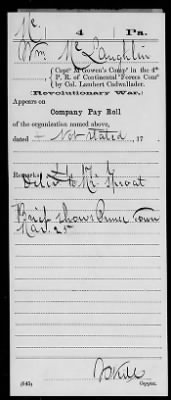 Mc 4 Pa.
Wm. McLaughlin
Capt McGowen's Comp'y in the 4th
P. R. of Continental Forces Com'd
by Col. Lambert Cadwallader.
Revolutionary War.
Appears on
Company Pay Roll
of the organization named above,
dated Not Stated, 17
Remarks: Deliv'd to Mr Sproat
Brief shows Prince Town
Mar. 25
(545) Copyist.